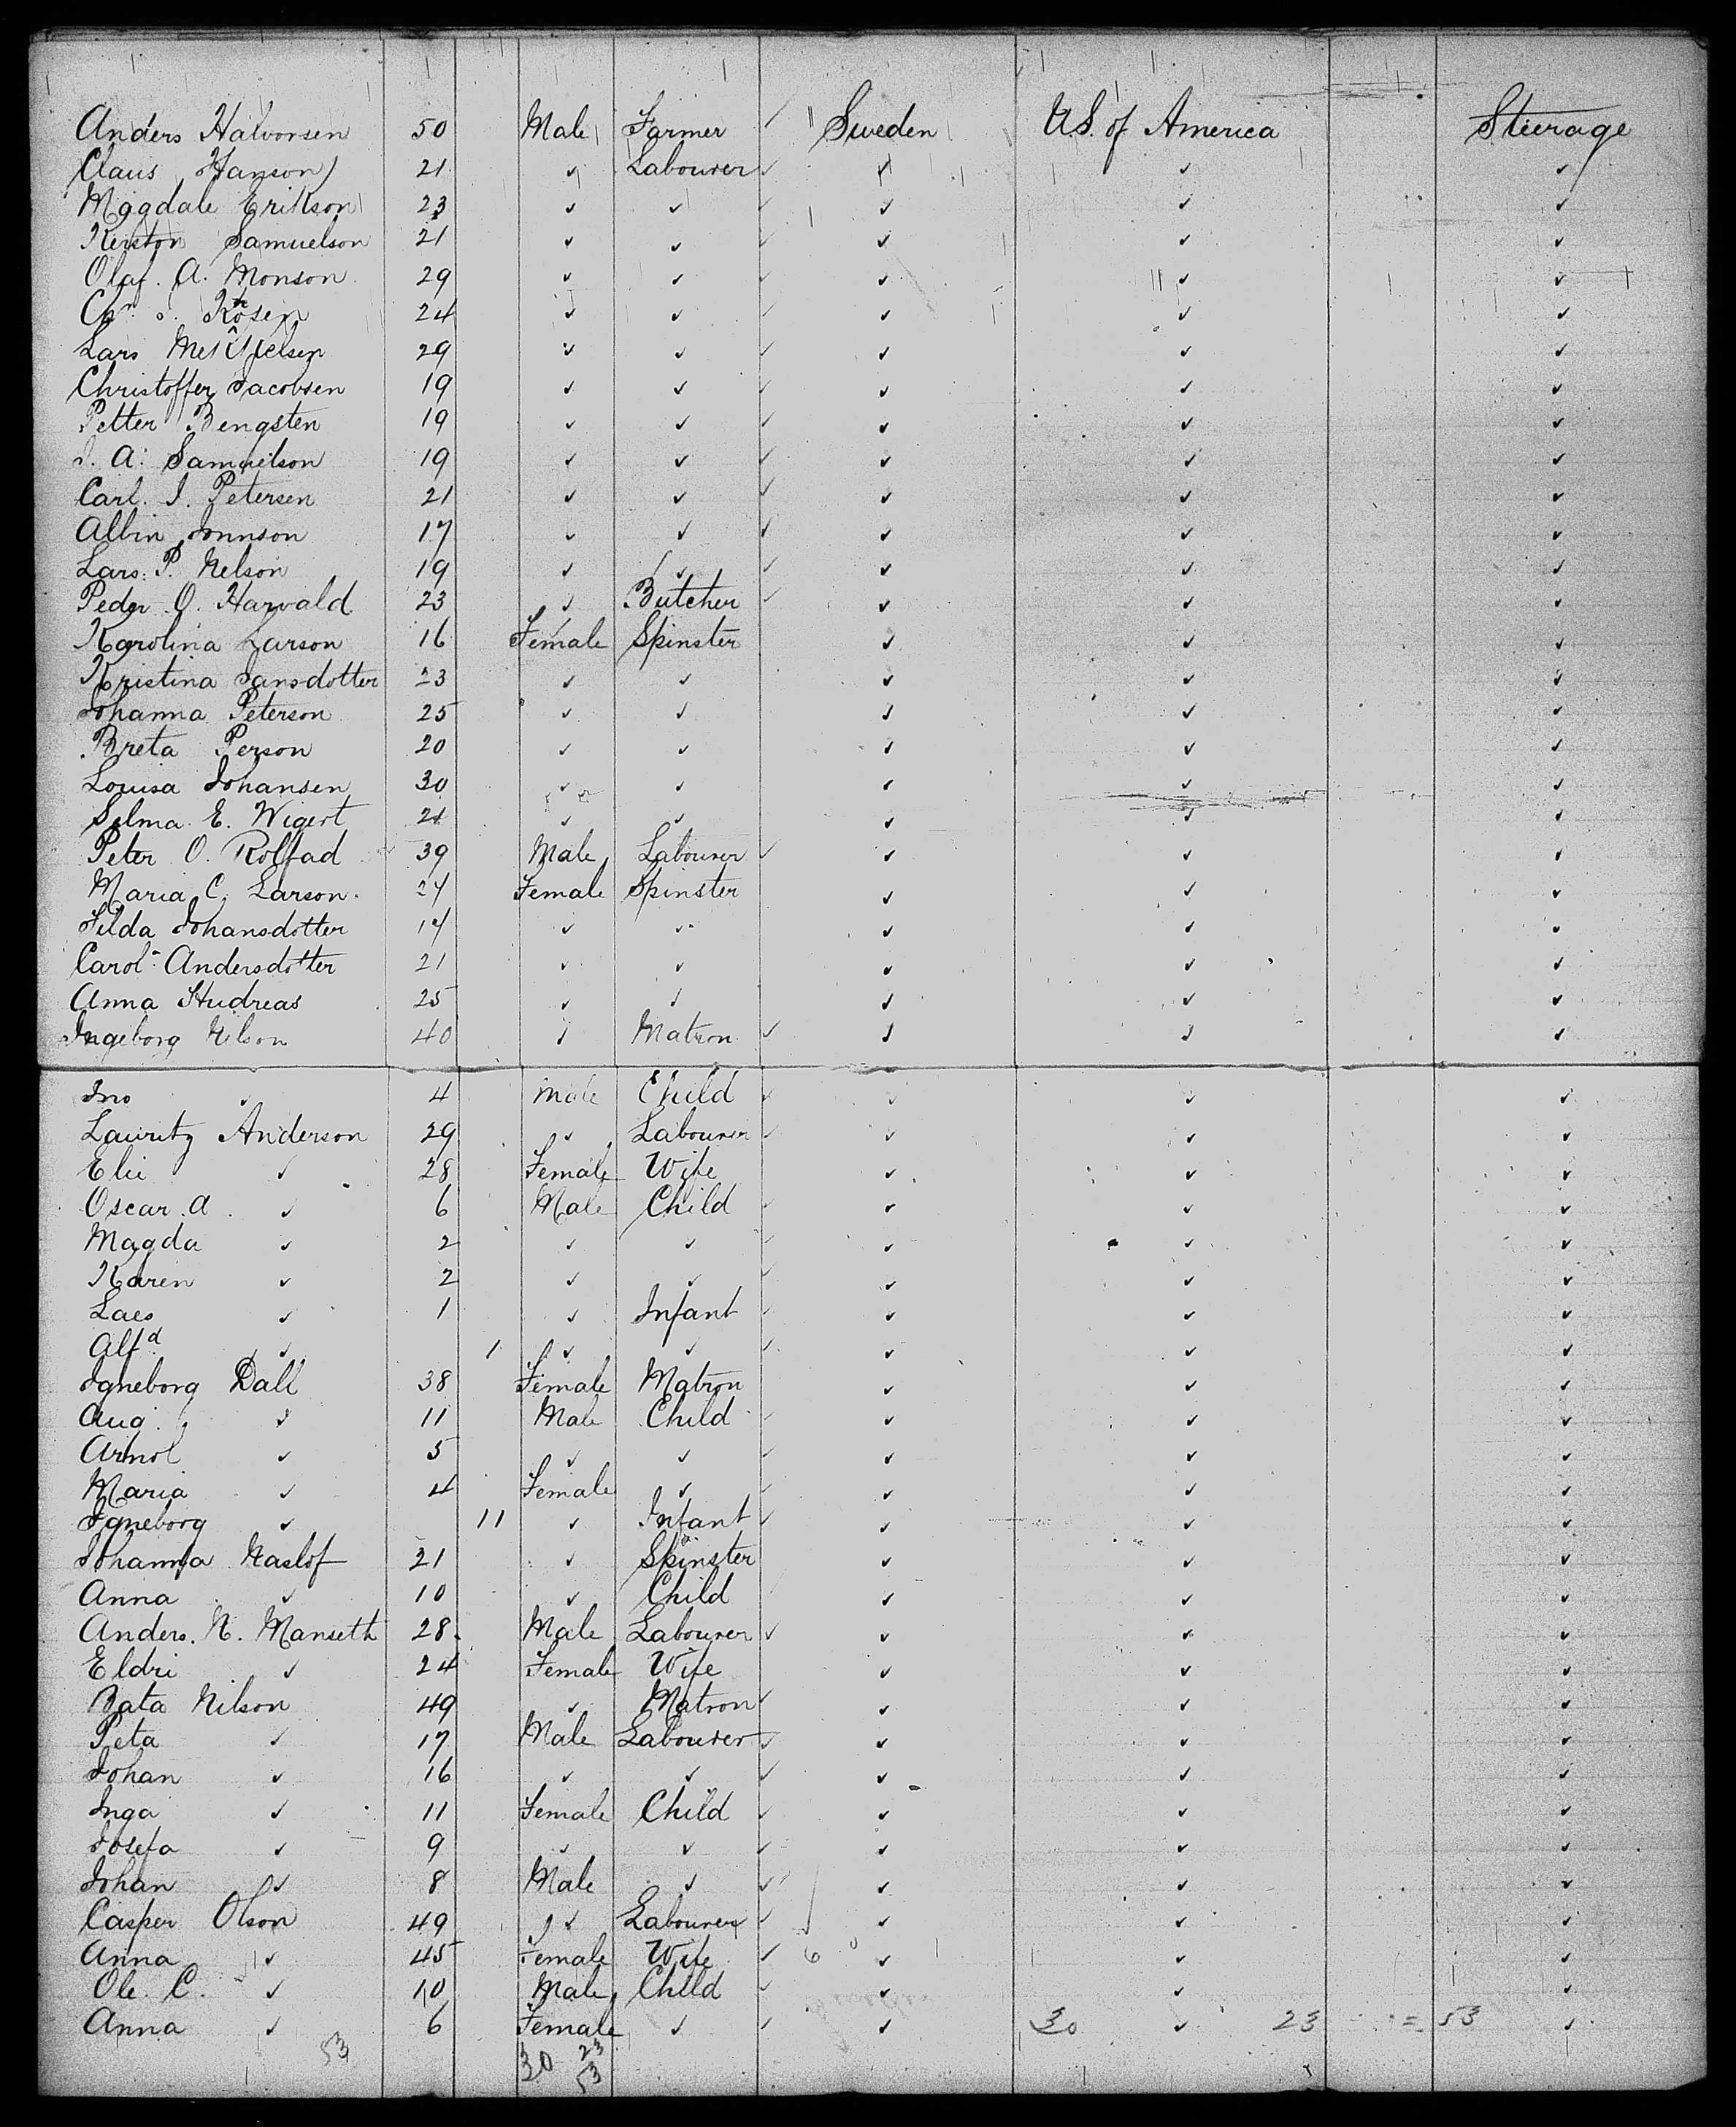 Anders Halvorsen 50 Male Farmer ✓ Sweden U.S. of America Steerage
Claus Hanson 21 ✓ Labourer ✓ ✓ ✓ ✓
Magdale Erikson 23 ✓ ✓ ✓ ✓ ✓ ✓
Kerston Samuelson 21 ✓ ✓ ✓ ✓ ✓ ✓
Olaf. A. Monson 29 ✓ ✓ ✓ ✓ ✓ ✓
Chr. Rosen 24 ✓ ✓ ✓ ✓ ✓ ✓
Lars 29 ✓ ✓ ✓ ✓ ✓ ✓
Christoffer Jacobsen 19 ✓ ✓ ✓ ✓ ✓ ✓
Petter Bengsten 19 ✓ ✓ ✓ ✓ ✓ ✓
J. A. Samuelson 19 ✓ ✓ ✓ ✓ ✓ ✓
Carl. J. Petersen 21 ✓ ✓ ✓ ✓ ✓ ✓
Albin Jonnson 17 ✓ ✓ ✓ ✓ ✓ ✓
Lars. P. Nelson 19 ✓ ✓ ✓ ✓ ✓ ✓
Peder O. Harvald 23 ✓ Butcher ✓ ✓ ✓ ✓
Karolina Larson 16 Female Spinster ✓ ✓ ✓
Kristina Jansdotter 23 ✓ ✓ ✓ ✓ ✓
Johanna Peterson 25 ✓ ✓ ✓ ✓ ✓
Breta Person 20 ✓ ✓ ✓ ✓ ✓
Louisa Johansen 30 ✓ ✓ ✓ ✓ ✓
Selma E. Wigert 21 ✓ ✓ ✓ ✓ ✓
Peter O. Rolfad 39 Male Labourer ✓ ✓ ✓ ✓
Maria C. Larson. 24 Female Spinster ✓ ✓ ✓
Tilda Johansdotter 14 ✓ ✓ ✓ ✓ ✓
Carol. Andersdotter 21 ✓ ✓ ✓ ✓ ✓
Anna Hudreas 25 ✓ ✓ ✓ ✓ ✓
Ingeborg Nilson 40 ✓ Matron ✓ ✓ ✓ ✓
Jno ✓ 4 Male Child ✓ ✓ ✓ ✓
Lauritz Anderson 29 ✓ Labourer ✓ ✓ ✓ ✓
Elie ✓ 28 Female Wife ✓ ✓ ✓
Oscar. A. ✓ 6 Male Child ✓ ✓ ✓ ✓
Magda ✓ 2 ✓ ✓ ✓ ✓ ✓ ✓
Karen ✓ 2 ✓ ✓ ✓ ✓ ✓ ✓
Laes ✓ 1 ✓ Infant ✓ ✓ ✓ ✓
Alfd ✓ 1 ✓ ✓ ✓ ✓ ✓ ✓
Igneborg Dall 38 Female Matron ✓ ✓ ✓
Aug. ✓ 11 Male Child ✓ ✓ ✓ ✓
Arnol ✓ 5 ✓ ✓ ✓ ✓ ✓ ✓
Maria ✓ 4 Female ✓ ✓ ✓ ✓ ✓
Igneborg ✓ 11 ✓ Infant ✓ ✓ ✓ ✓
Johanna Naslof 21 ✓ Spinster ✓ ✓ ✓
Anna ✓ 10 ✓ Child ✓ ✓ ✓
Anders. N. Manseth 28. Male Labourer ✓ ✓ ✓ ✓
Eldri ✓ 24 Female Wife ✓ ✓ ✓
Bata Nilson 49 ✓ Matron ✓ ✓ ✓ ✓
Peta ✓ 17 Male Labourer ✓ ✓ ✓ ✓
Johan ✓ 16 ✓ ✓ ✓ ✓ ✓ ✓
Inga ✓ 11 Female Child ✓ ✓ ✓ ✓
Josefa ✓ 9 ✓ ✓ ✓ ✓ ✓ ✓
Johan ✓ 8 Male ✓ ✓ ✓ ✓ ✓
Casper Olson 49 ✓ Labourer ✓ ✓ ✓ ✓
Anna ✓ 45 Female Wife ✓ 6 ✓ ✓ ✓
Ole. C. ✓ 10 Male Child ✓ ✓ ✓ ✓
Anna ✓ 6 Female ✓ ✓ ✓ 30 ✓ 23 = 53 ✓
53 30 23
53